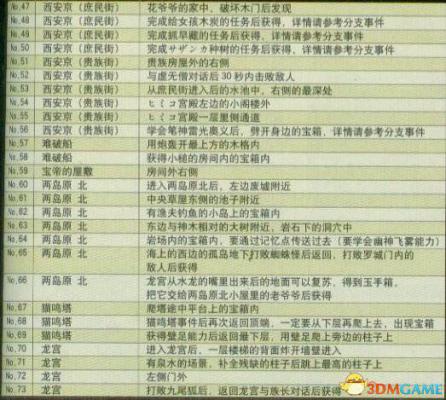 No.47 西安京（庶民街） 花爷爷的家中，破坏木门后发现
No.48 西安京（庶民街） 完成给女孩木炭的任务后获得，详情请参考分支事件
No.49 西安京（庶民街） 完成抓早藏的任务后获得，详情请参考分支事件
No.50 西安京（庶民街） 完成サザンカ种树的任务后获得，详情请参考分支事件
No.51 西安京（贵族街） 贵族房屋外的右侧
No.52 西安京（贵族街） 与虚无僧对话后30秒内击败敌人
No.53 西安京（贵族街） 从庶民街进入后的水池中，右侧的最深处
No.54 西安京（贵族街） ヒミコ宫殿左边的小阁楼外
No.55 西安京（贵族街） ヒミコ宫殿一层里侧通道
No.56 西安京（贵族街） 学会笔神雷光奥义后，劈开身边的宝箱，详情请参考分支事件
No.57 难破船 用炮轰开最上方的木格内
No.58 难破船 获得小槌的房间内的宝箱内
No.59 宝帝的屋敷 房间外右侧
No.60 两岛原 北 进入两岛原北后，左边废墟附近
No.61 两岛原 北 中央草屋东侧的池子附近
No.62 两岛原 北 有渔夫钓鱼的小岛上的宝箱内
No.63 两岛原 北 东边与神木相对的大树附近，岩石下的洞穴中
No.64 两岛原 北 岩场内的宝箱内，要通过记忆点传送过去（要学会幽神飞雾能力）
No.65 两岛原 北 海上的西边的孤岛地下打败蜘蛛怪后返回，打败罗城门内的
敌人后获得
No.66 两岛原 北 龙宫从水龙的嘴里出来后的地面可以复苏，得到玉手箱，
把它交给两岛原北小屋里的老爷爷后获得
No.67 猫鸣塔 爬塔途中平台上的宝箱内
No.68 猫鸣塔 猫鸣塔事件后再次返回顶端，一定要从下层再爬上去，出现宝箱
No.69 猫鸣塔 获得壁足能力后返回最下层，用壁足爬上旁边的柱子上
No.70 龙宫 进入龙宫后，一层楼梯的背面炸开墙壁进入
No.71 龙宫 有泉水的场景，补全残缺的柱子后跳上最高的柱子上
No.72 龙宫 左侧门外
No.73 龙宫 打败九尾狐后，返回龙宫与族长对话后获得
3DMGAME